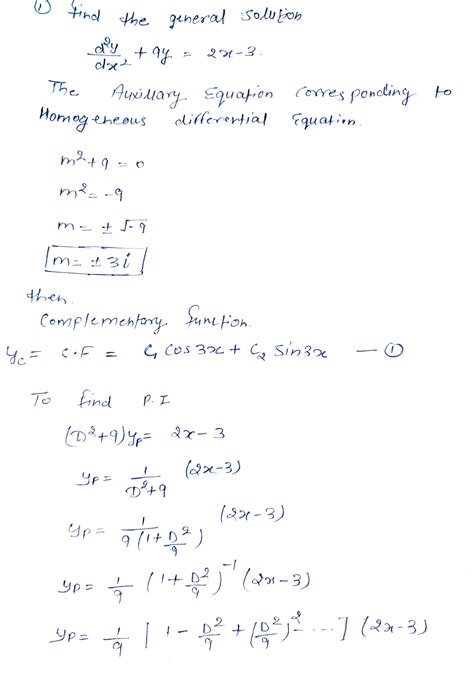 ① find the general solution
d²y/dx² + 9y = 2x-3.
The Auxillary Equation corresponding to
Homogeneous differential Equation.
m²+9=0
m²=-9
m= ± √-9
m= ± 3i
then.
complementary function.
y_c = C.F = C₁ cos3x + C₂ sin3x — ①
To find P.I
(D²+9)y_p = 2x-3
y_p = 1/(D²+9) (2x-3)
y_p = 1/(9(1+D²/9)) (2x-3)
y_p = 1/9 (1+D²/9)⁻¹ (2x-3)
y_p = 1/9 [1 - D²/9 + (D²/9)² - ....] (2x-3)